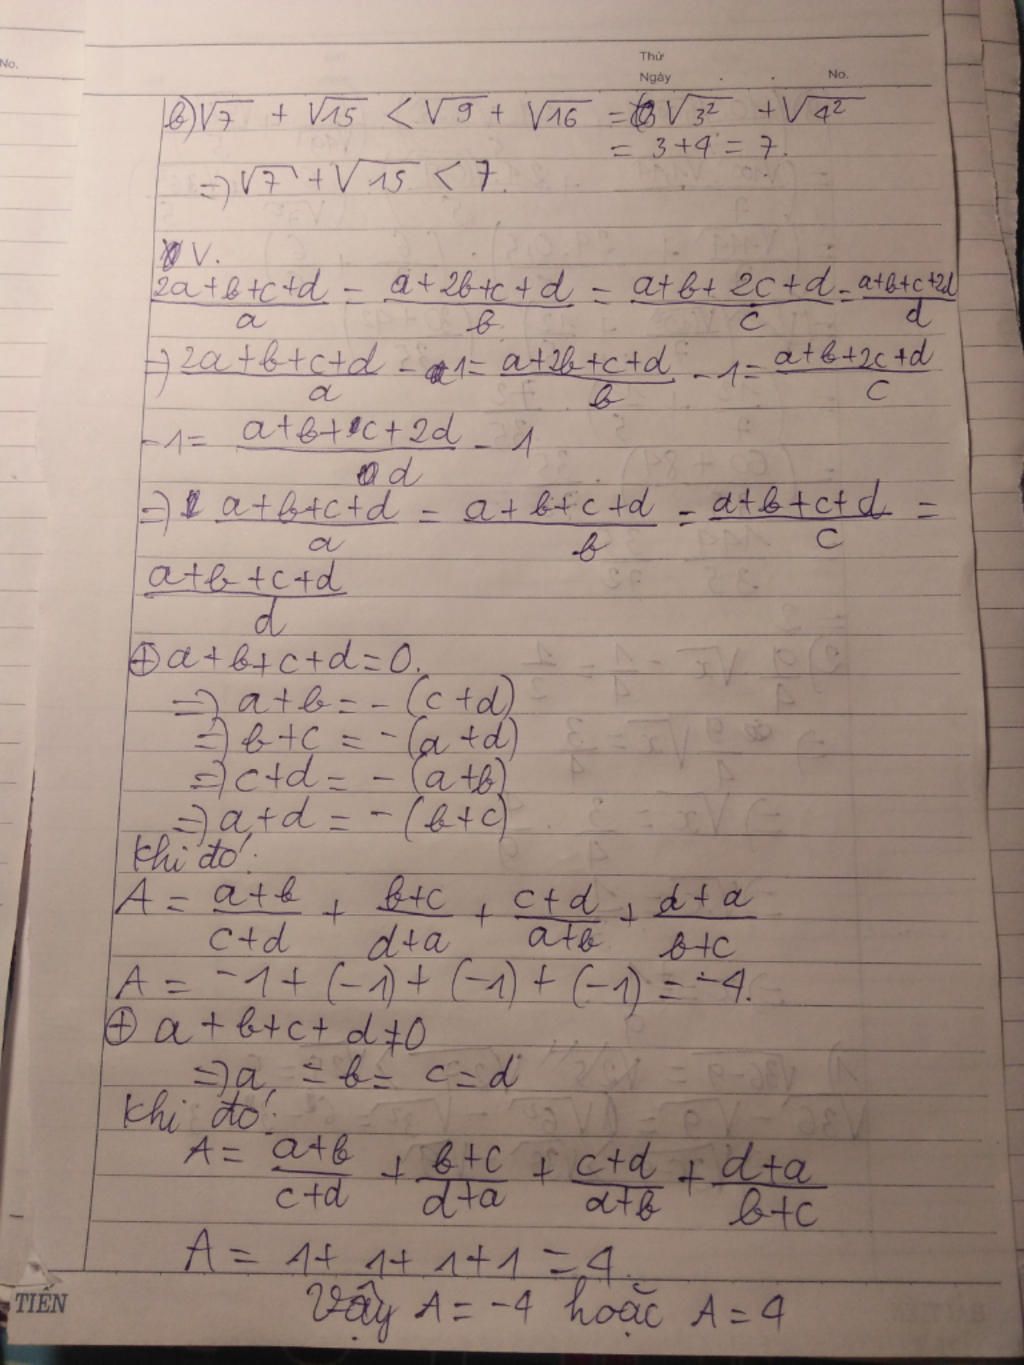 No.
Thứ
Ngày . . No.
b) √7 + √15 < √9 + √16 = √3² + √4²
= 3+4 = 7.
=> √7 + √15 < 7.
V.
(2a+b+c+d)/a = (a+2b+c+d)/b = (a+b+2c+d)/c = (a+b+c+2d)/d
=> (2a+b+c+d)/a - 1 = (a+2b+c+d)/b - 1 = (a+b+2c+d)/c
-1 = (a+b+c+2d)/d - 1
=> (a+b+c+d)/a = (a+b+c+d)/b = (a+b+c+d)/c =
(a+b+c+d)/d
⊕ a+b+c+d=0.
=> a+b = -(c+d)
=> b+c = -(a+d)
=> c+d = -(a+b)
=> a+d = -(b+c)
Khi đó:
A = (a+b)/(c+d) + (b+c)/(d+a) + (c+d)/(a+b) + (d+a)/(b+c)
A = -1 + (-1) + (-1) + (-1) = -4.
⊕ a+b+c+d≠0
=> a = b = c = d
Khi đó:
A = (a+b)/(c+d) + (b+c)/(d+a) + (c+d)/(a+b) + (d+a)/(b+c)
A = 1+ 1+ 1+1 = 4.
Vậy A = -4 hoặc A = 4
TIẾN